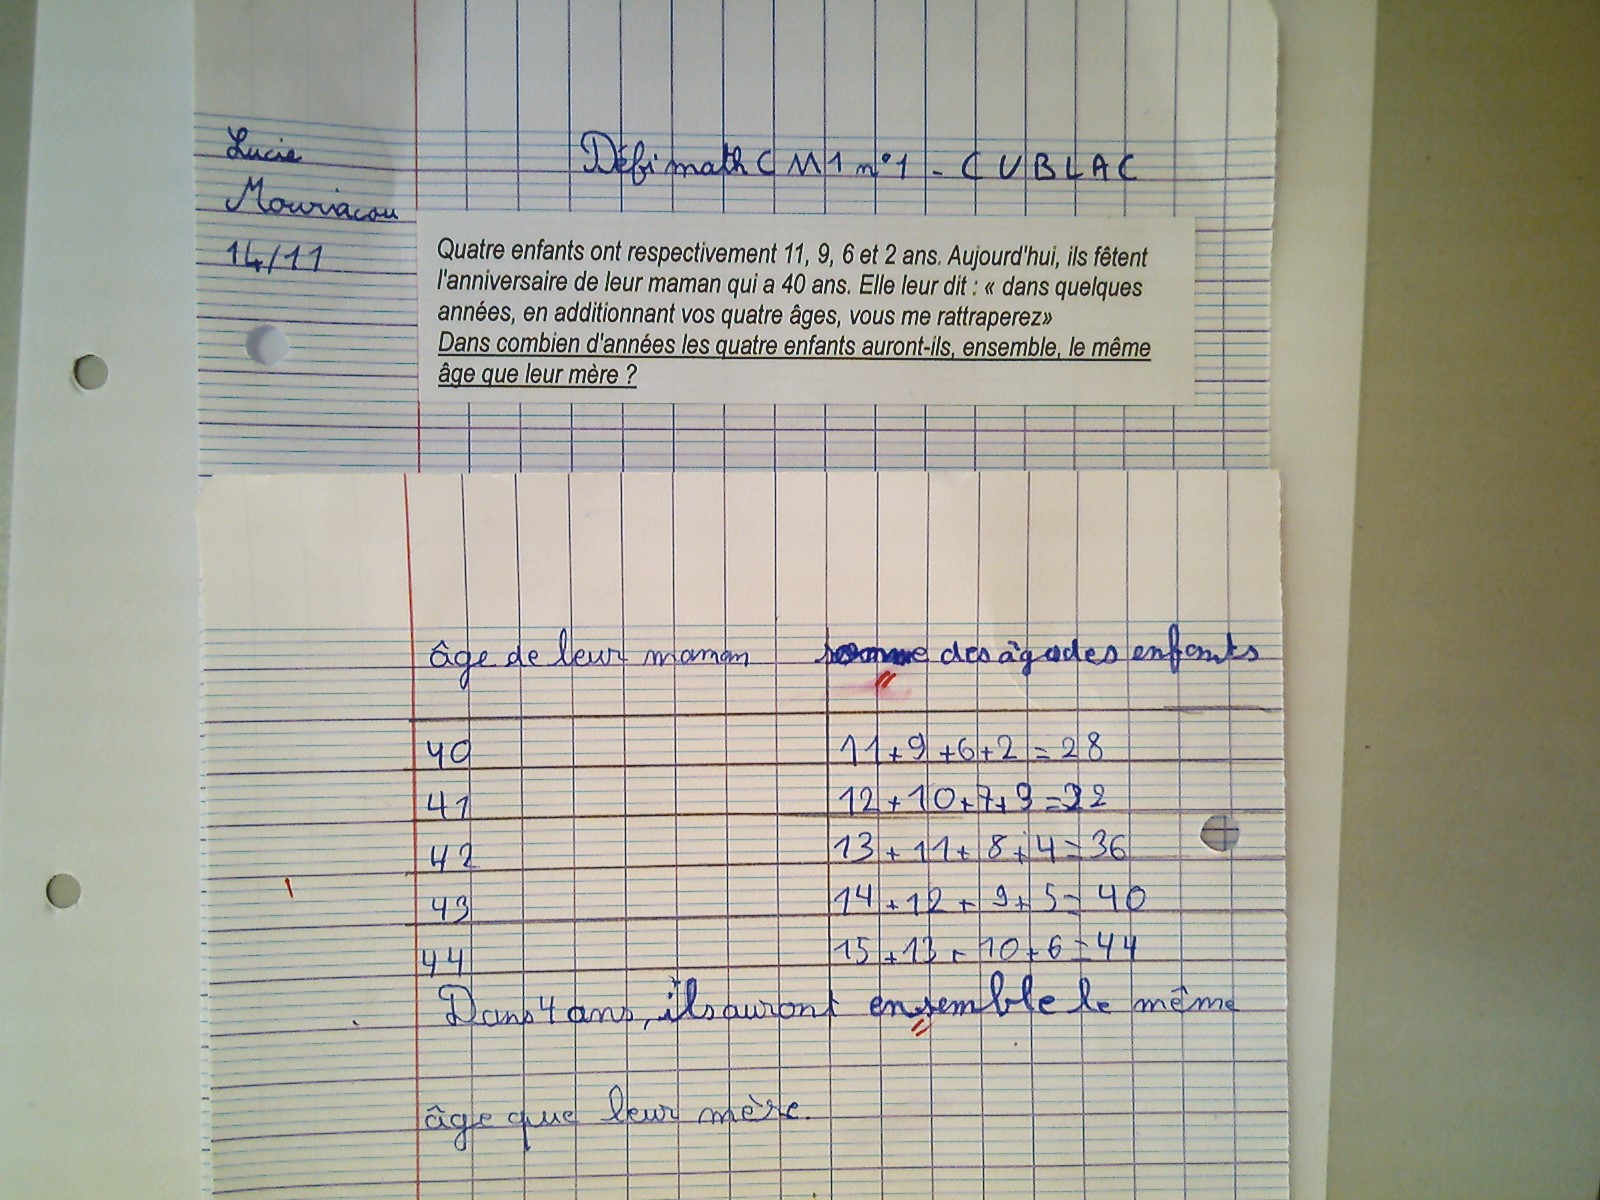 Lucie
Défi math CM1 n°1 - CUBLAC
Mouriacou
14/11
Quatre enfants ont respectivement 11, 9, 6 et 2 ans. Aujourd'hui, ils fêtent
l'anniversaire de leur maman qui a 40 ans. Elle leur dit : « dans quelques
années, en additionnant vos quatre âges, vous me rattraperez»
Dans combien d'années les quatre enfants auront-ils, ensemble, le même
âge que leur mère ?
âge de leur maman somme des âges des enfants
40 11+9+6+2=28
41 12+10+7+3=32
42 13+11+8+4=36
43 14+12+9+5=40
44 15+13+10+6=44
Dans 4 ans, ils auront ensemble le même
âge que leur mère.